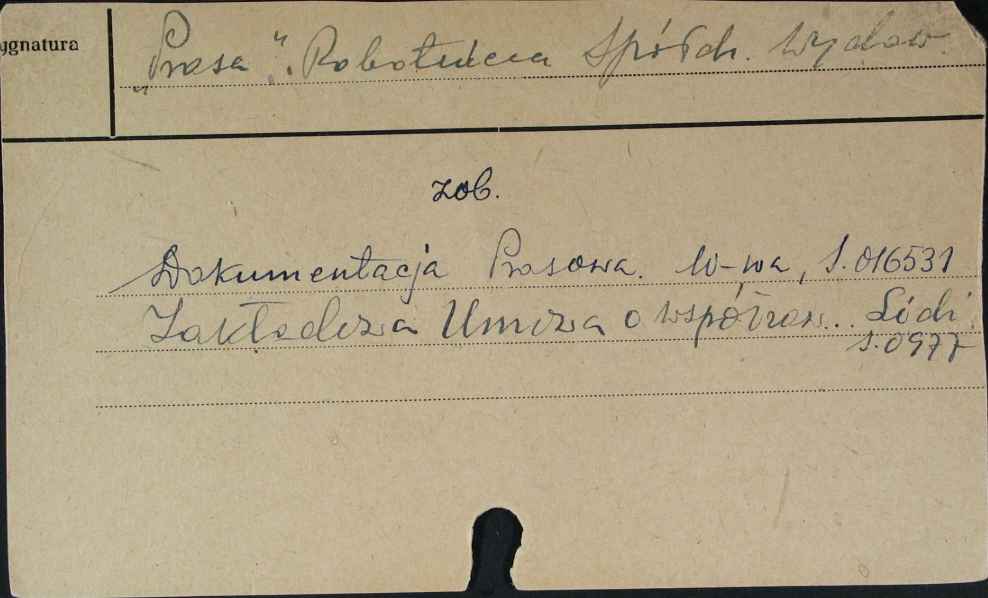 ygnatura
„Prasa". Robotnicza Spółdz. Wydaw.
zob.
Dokumentacja Prasowa. W-wa, S.016531
Zakładowa Umowa o współzaw... Łódź.
S.0977